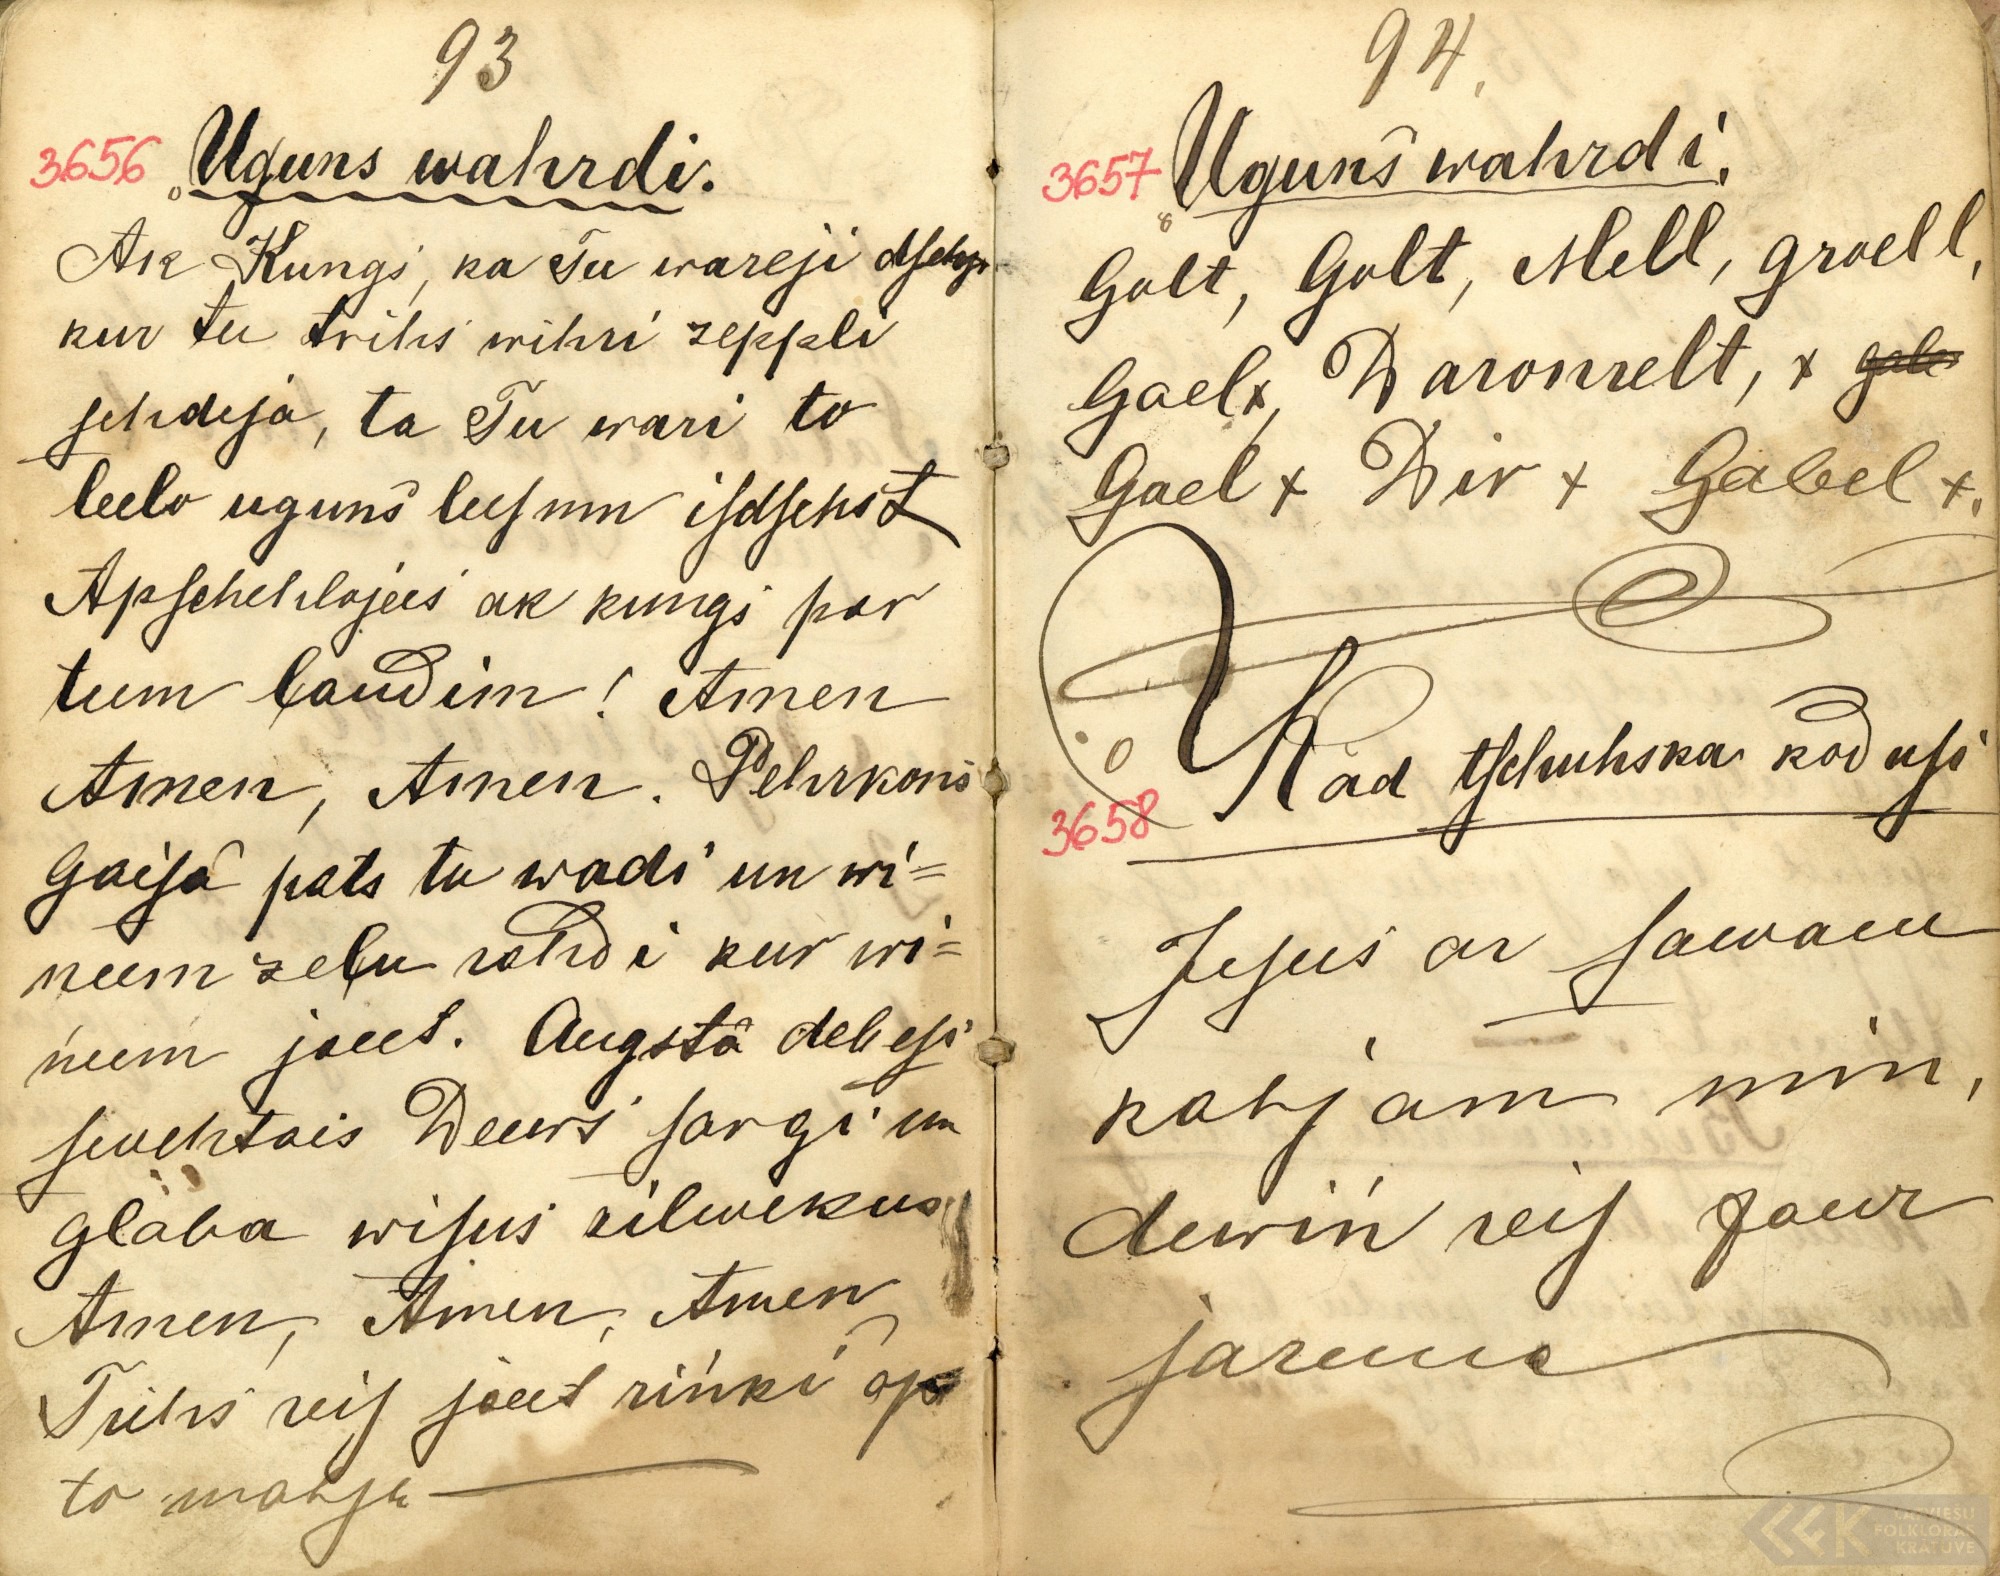 93
3656 Uguns wahrdi.
Ak Kungs, ka Tu wareji dsehs
kur tu trihs wihri zeppli
sehdeja, ta Tu wari to
leelo uguns leesmu isdsehst
Apschehlojees ak kungs par
teem laudim! Amen
Amen, Amen. Pehrkons
Gaisâ pats tu wadi un wi=
neem zelu rahdi kur wi=
neem jaeet. Augstâ debesi
swehtais Deews sargi un
glâba wisus zilwekus
Amen, Amen, Amen
Trihs reis jaeet rinki ap
to mahju
94.
3657 Uguns wahrdi.
Golt, Golt, Mell, groell,
Gael x, Daronrelt, x
Gael x Dir x Gabel x.
3658 Kad tschuhska kodusi
Jesus ar sawam
kahjam min,
dewin reis zaur
jarema
LATVIEŠU
FOLKLORAS
KRĀTUVE